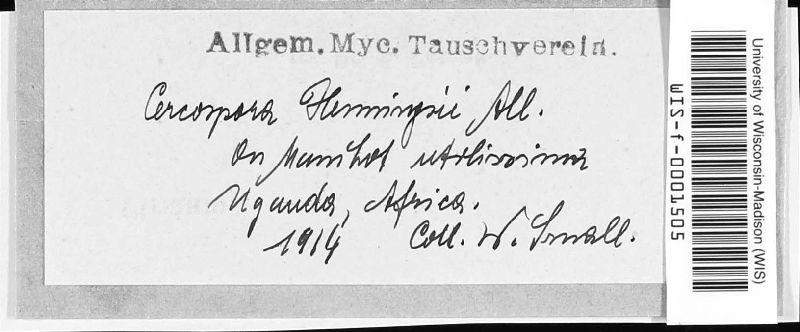 Allgem. Myc. Tauschverein.
Cercospora Henningsii All.
On Manihot utilissima
Uganda, Africa.
1914 Coll. W. Small.
University of Wisconsin-Madison (WIS)
WIS-f-0001505